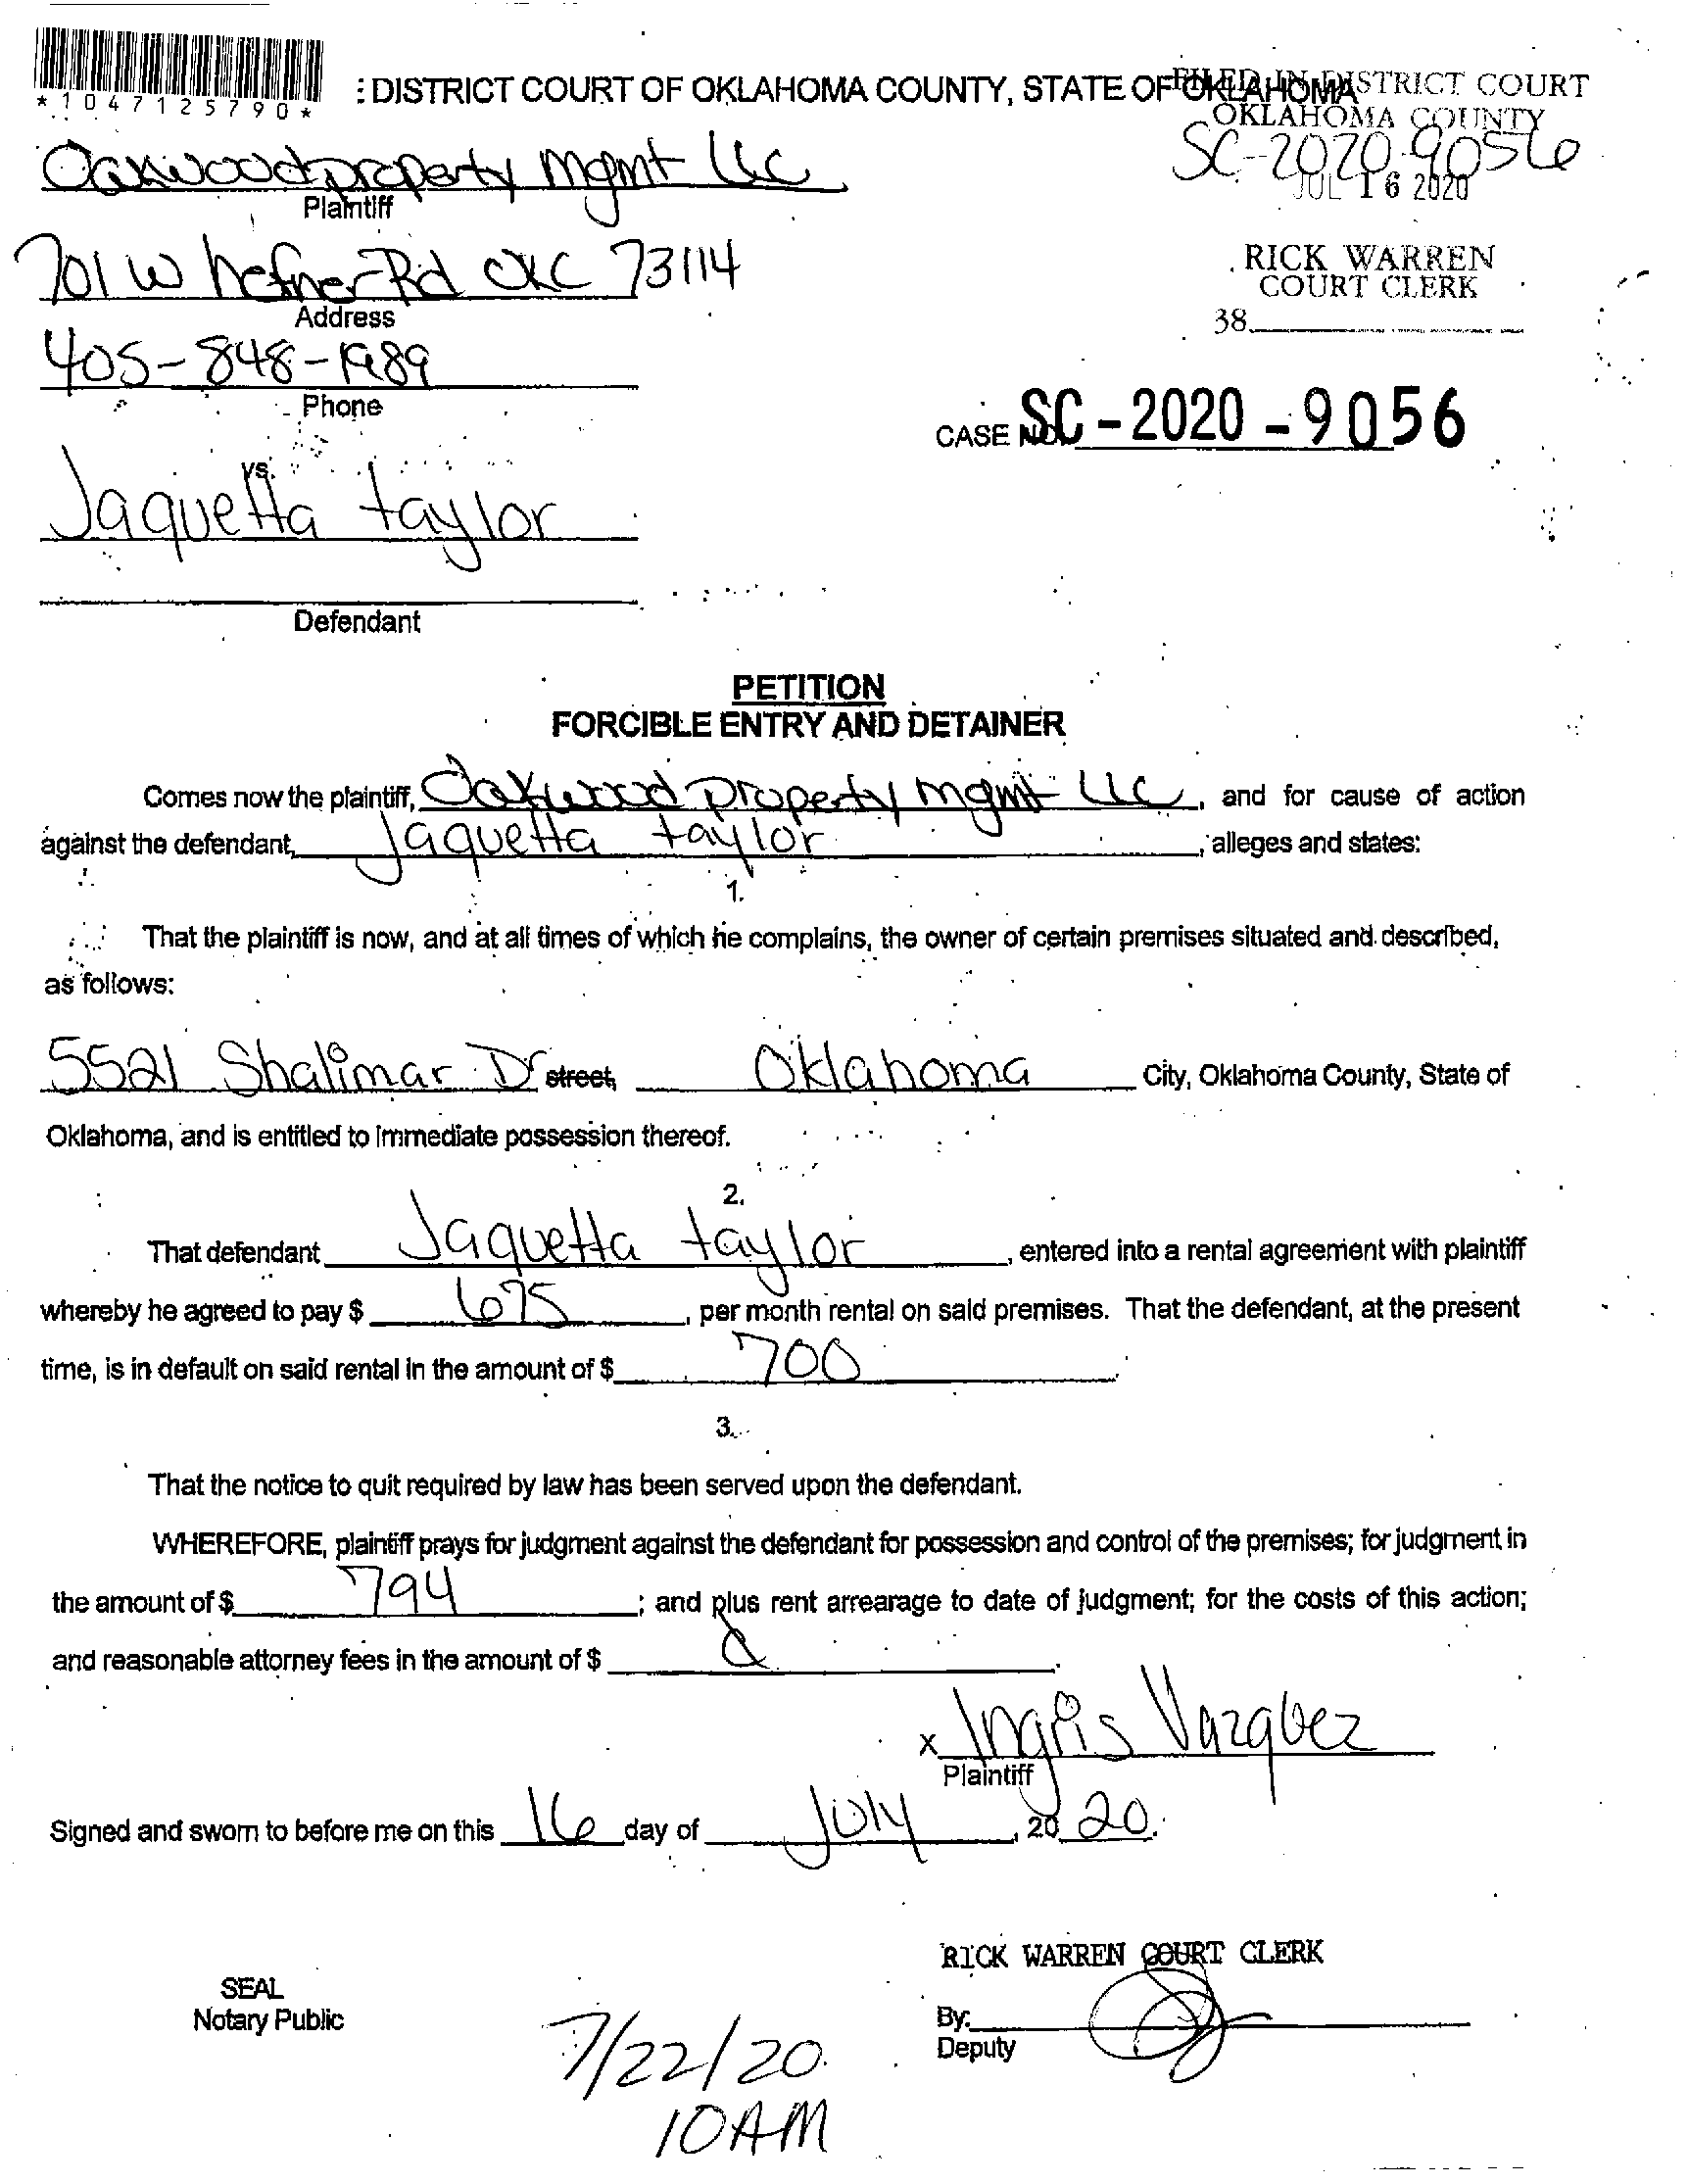 *1047125790*
: DISTRICT COURT OF OKLAHOMA COUNTY, STATE OF OKLAHOMA
FILED IN DISTRICT COURT
OKLAHOMA COUNTY
SC-2020-9056
JUL 16 2020
Oakwood property mgmt LLC
Plaintiff
701 W hefner Rd OKC 73114
Address
RICK WARREN
COURT CLERK
38
405-848-1989
Phone
CASE NO. SC-2020-9056
vs.
Jaquetta taylor
Defendant
PETITION
FORCIBLE ENTRY AND DETAINER
Comes now the plaintiff, Oakwood property mgmt LLC, and for cause of action
against the defendant, Jaquetta taylor, alleges and states:
1.
That the plaintiff is now, and at all times of which he complains, the owner of certain premises situated and described,
as follows:
5521 Shalimar Dr street, Oklahoma City, Oklahoma County, State of
Oklahoma, and is entitled to immediate possession thereof.
2.
That defendant Jaquetta taylor, entered into a rental agreement with plaintiff
whereby he agreed to pay $ 675, per month rental on said premises. That the defendant, at the present
time, is in default on said rental in the amount of $ 700.
3.
That the notice to quit required by law has been served upon the defendant.
WHEREFORE, plaintiff prays for judgment against the defendant for possession and control of the premises; for judgment in
the amount of $ 794; and plus rent arrearage to date of judgment; for the costs of this action;
and reasonable attorney fees in the amount of $
x Ingris Vazquez
Plaintiff
Signed and sworn to before me on this 16 day of July, 20 20.
RICK WARREN COURT CLERK
SEAL
Notary Public
By:
Deputy
7/22/20
10AM